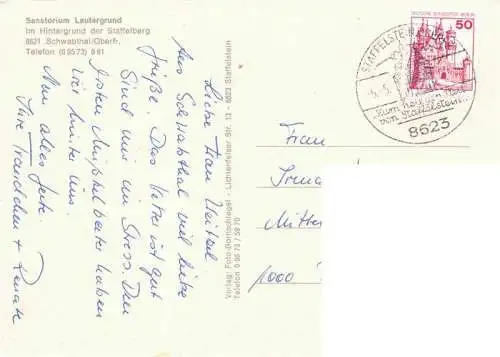 Sanatorium Lautergrund
im Hintergrund der Staffelberg
8621 Schwabthal/Oberfr.
Telefon (09573) 861
Liebe Frau
Aus Schwabthal viel liebe
Grüße. Das Wetter ist gut
Sind nur im Stress. Den
haben
wir hinter uns.
Nun alles Gute.
Ihre Traudchen + Renate
Verlag: Foto-Bornschlegel - Lichtenfelser Str. 13 - 8623 Staffelstein
Telefon 09573/5970
DEUTSCHE BUNDESPOST BERLIN
50
STAFFELSTEIN
Zum heil'gen Veit
von Staffelstein...
8623
Frau
Irma
Mitte
1000